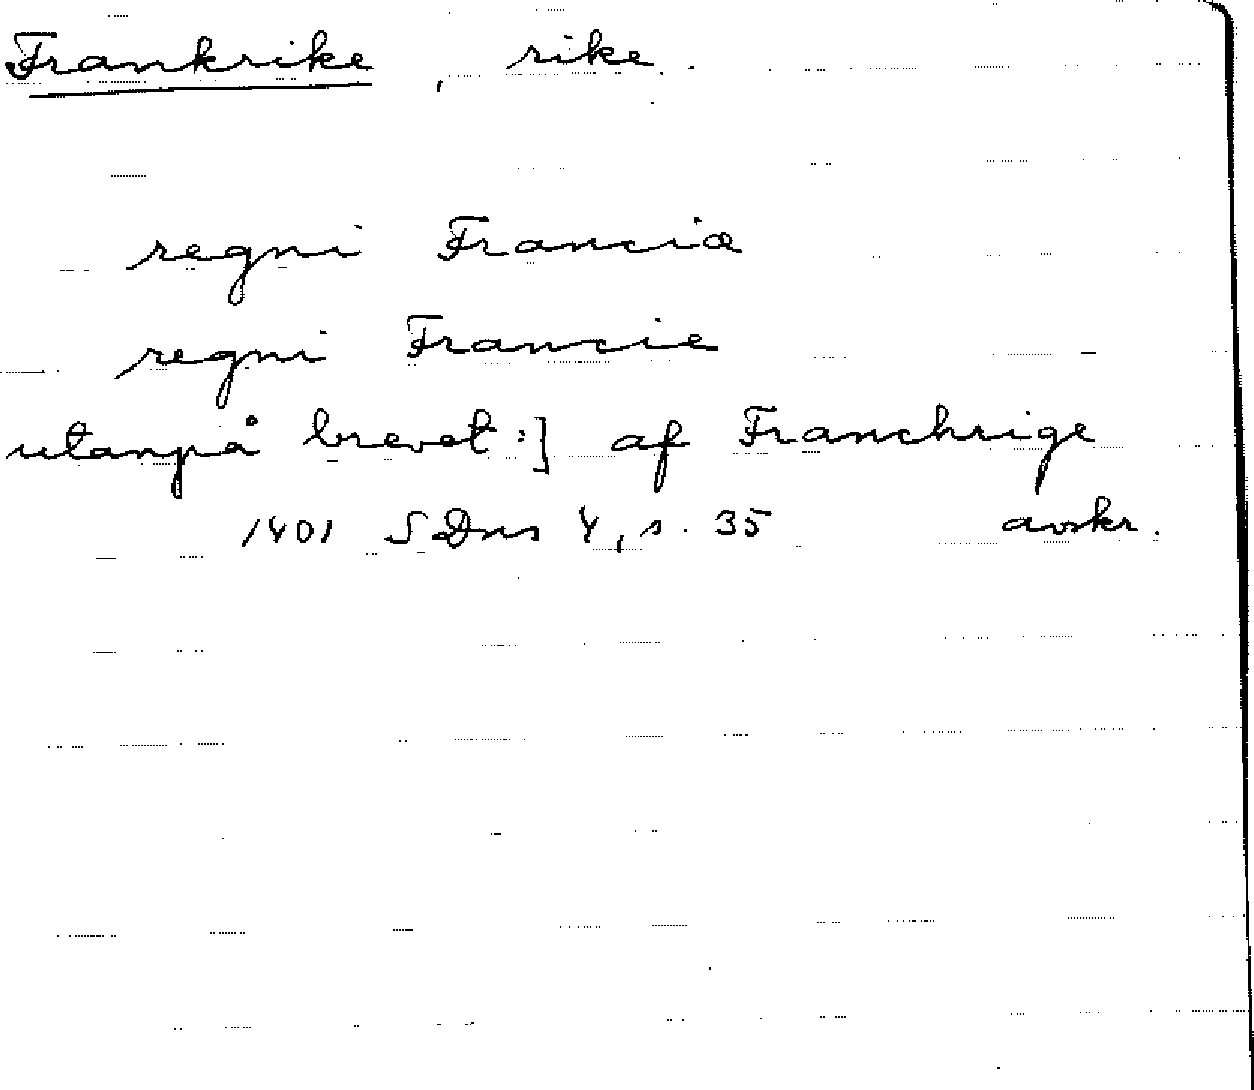 Frankrike, rike.
regni Franciæ
regni Francie
utanpå brevet:] af Franchrige
1401 SDns 4, s. 35 avskr.